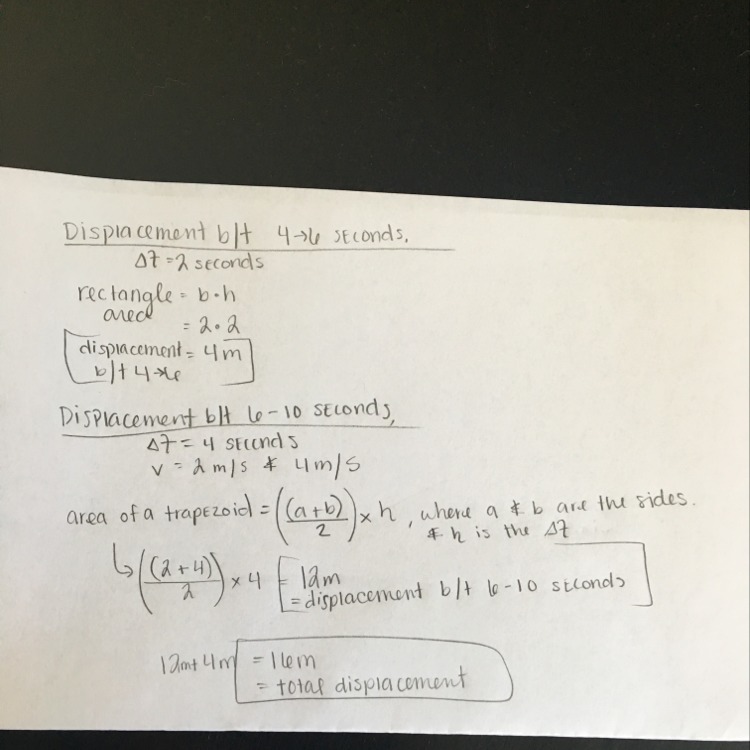 Displacement b/t 4→6 seconds,
Δt = 2 seconds
rectangle = b·h
area
= 2·2
displacement = 4m
b/t 4→6
Displacement b/t 6-10 seconds,
Δt = 4 seconds
v = 2 m/s & 4m/s
area of a trapezoid = ((a+b)/2) × h, where a & b are the sides.
& h is the Δt
↳ ((2+4)/2) × 4 = 12m
= displacement b/t 6-10 seconds
12m+4m = 16m
= total displacement